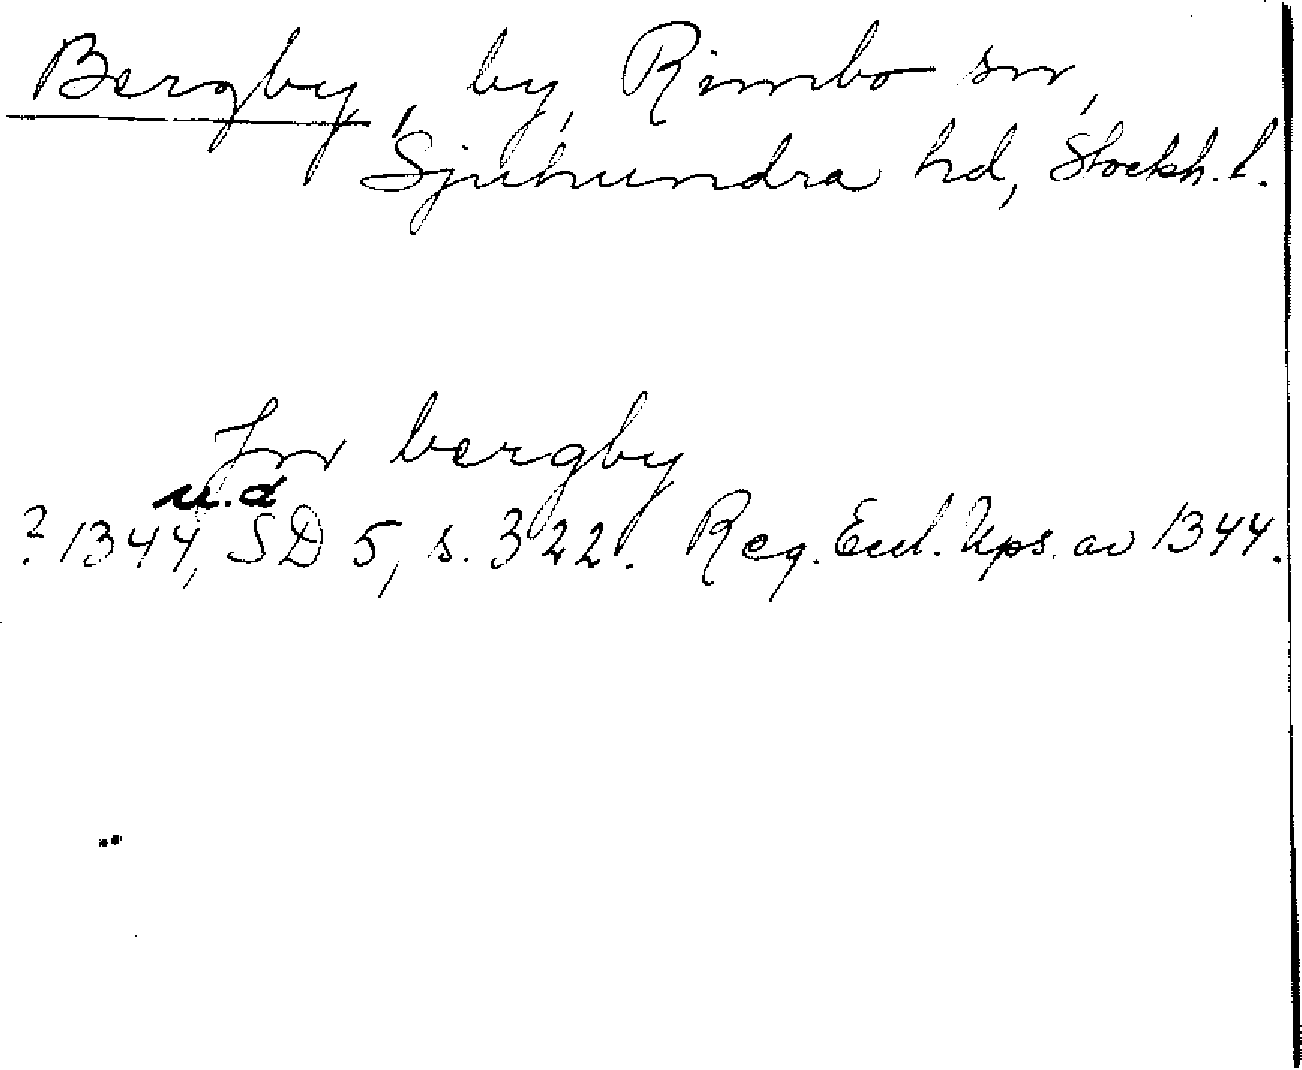 Bergby, by, Rimbo sn,
Sjuhundra hd, Stockh. l.
Jn bergby
u.d
? 1344, SD 5, s. 322. Reg. Eccl. Ups. av 1344.